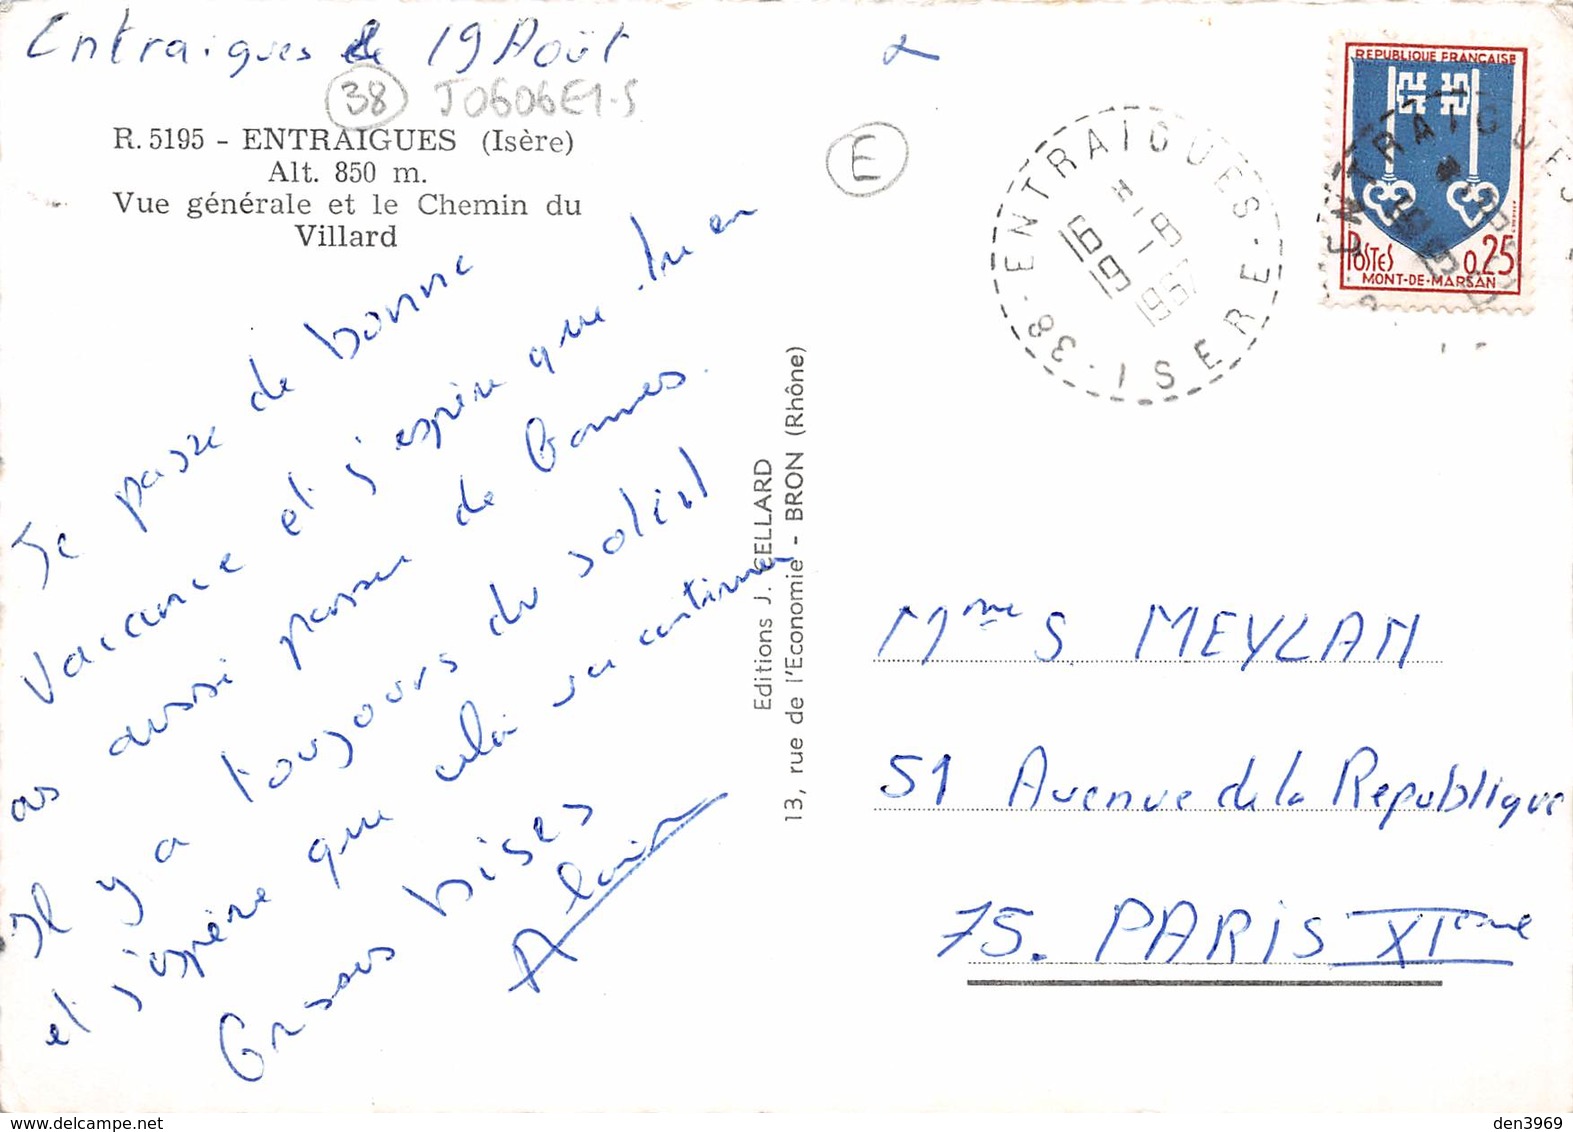 Entraigues le 19 Août
38 J0606E1-S
R. 5195 - ENTRAIGUES (Isère)
Alt. 850 m.
Vue générale et le Chemin du
Villard
Je passe de bonne
vacance et j'espère que tu en
as aussi passer de bonnes.
il y a toujours du soleil
et j'espère que cela va continuer
Grosses bises
Alain
Editions J. CELLARD
13, rue de l'Economie - BRON (Rhône)
E
38 - ENTRAIGUES - ISERE
16 H
19 - 8
1967
REPUBLIQUE FRANÇAISE
POSTES 0,25
MONT-DE-MARSAN
ENTRAIGUES
Mme S. MEYLAN
51 Avenue de la Republique
75. PARIS XIeme
den3969